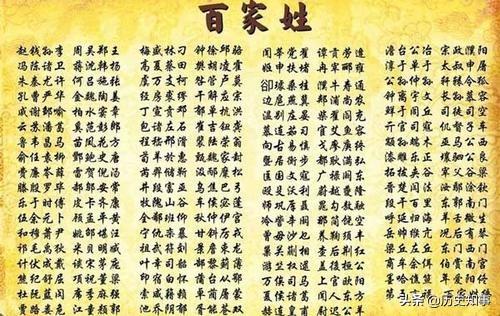 百家姓
赵钱孙李 周吴郑王 梅盛林刁 钟徐邱骆 闻莘党翟 谭贡劳逄 澹台公冶 宗政濮阳
冯陈褚卫 蒋沈韩杨 高夏蔡田 樊胡凌霍 姬申扶堵 冉宰郦雍 淳于单于 太叔申屠
朱秦尤许 何吕施张 虞万支柯 昝管卢莫 卻璩桑桂 濮牛寿通 公孙仲孙 轩辕令狐
孔曹严华 金魏陶姜 经房裘缪 干解应宗 边扈燕冀 郏浦尚农 钟离宇文 长孙慕容
戚谢邹喻 柏水窦章 丁宣贲邓 郁单杭洪 温别庄晏 柴瞿阎充 鲜于闾丘 司徒司空
云苏潘葛 奚范彭郎 包诸左石 崔吉钮龚 慕连茹习 宦艾鱼容 亓官司寇 仉督子车
鲁韦昌马 苗凤花方 程嵇邢滑 裴陆荣翁 向古易慎 戈廖庾终 颛孙端木 巫马公西
俞任袁柳 酆鲍史唐 荀羊於惠 甄曲家封 暨居衡步 都耿满弘 漆雕乐正 壤驷公良
费廉岑薛 雷贺倪汤 芮羿储靳 汲邴糜松 匡国文寇 广禄阙东 拓跋夹谷 宰父谷梁
滕殷罗毕 郝邬安常 井段富巫 乌焦巴弓 欧殳沃利 蔚越夔隆 晋楚闫法 汝鄢涂钦
乐于时傅 皮卞齐康 牧隗山谷 车侯宓蓬 师巩厍聂 晁勾敖融 段干百里 东郭南门
伍余元卜 顾孟平黄 全郗班仰 秋仲伊宫 冷訾辛阚 那简饶空 呼延归海 羊舌微生
和穆萧尹 姚邵湛汪 宁仇栾暴 甘钭厉戎 曾毋沙乜 养鞠须丰 岳帅缑亢 况郈有琴
祁毛禹狄 米贝明臧 祖武符刘 景詹束龙 巢关蒯相 查后荆红 梁丘左丘 东门西门
计伏成戴 谈宋茅庞 叶幸司韶 郜黎蓟薄 游竺权逯 盖益桓公 商牟佘佴 伯赏南宫
熊纪舒屈 项祝董梁 印宿白怀 蒲邰从鄂 万俟司马 上官欧阳 墨哈谯笪 年爱阳佟
杜阮蓝闵 席季麻强 索咸籍赖 卓蔺屠蒙 夏侯诸葛 闻人东方
贾路娄危 江童颜郭 池乔阴郁 胥能苍双 赫连皇甫 尉迟公羊
头条@历史知事